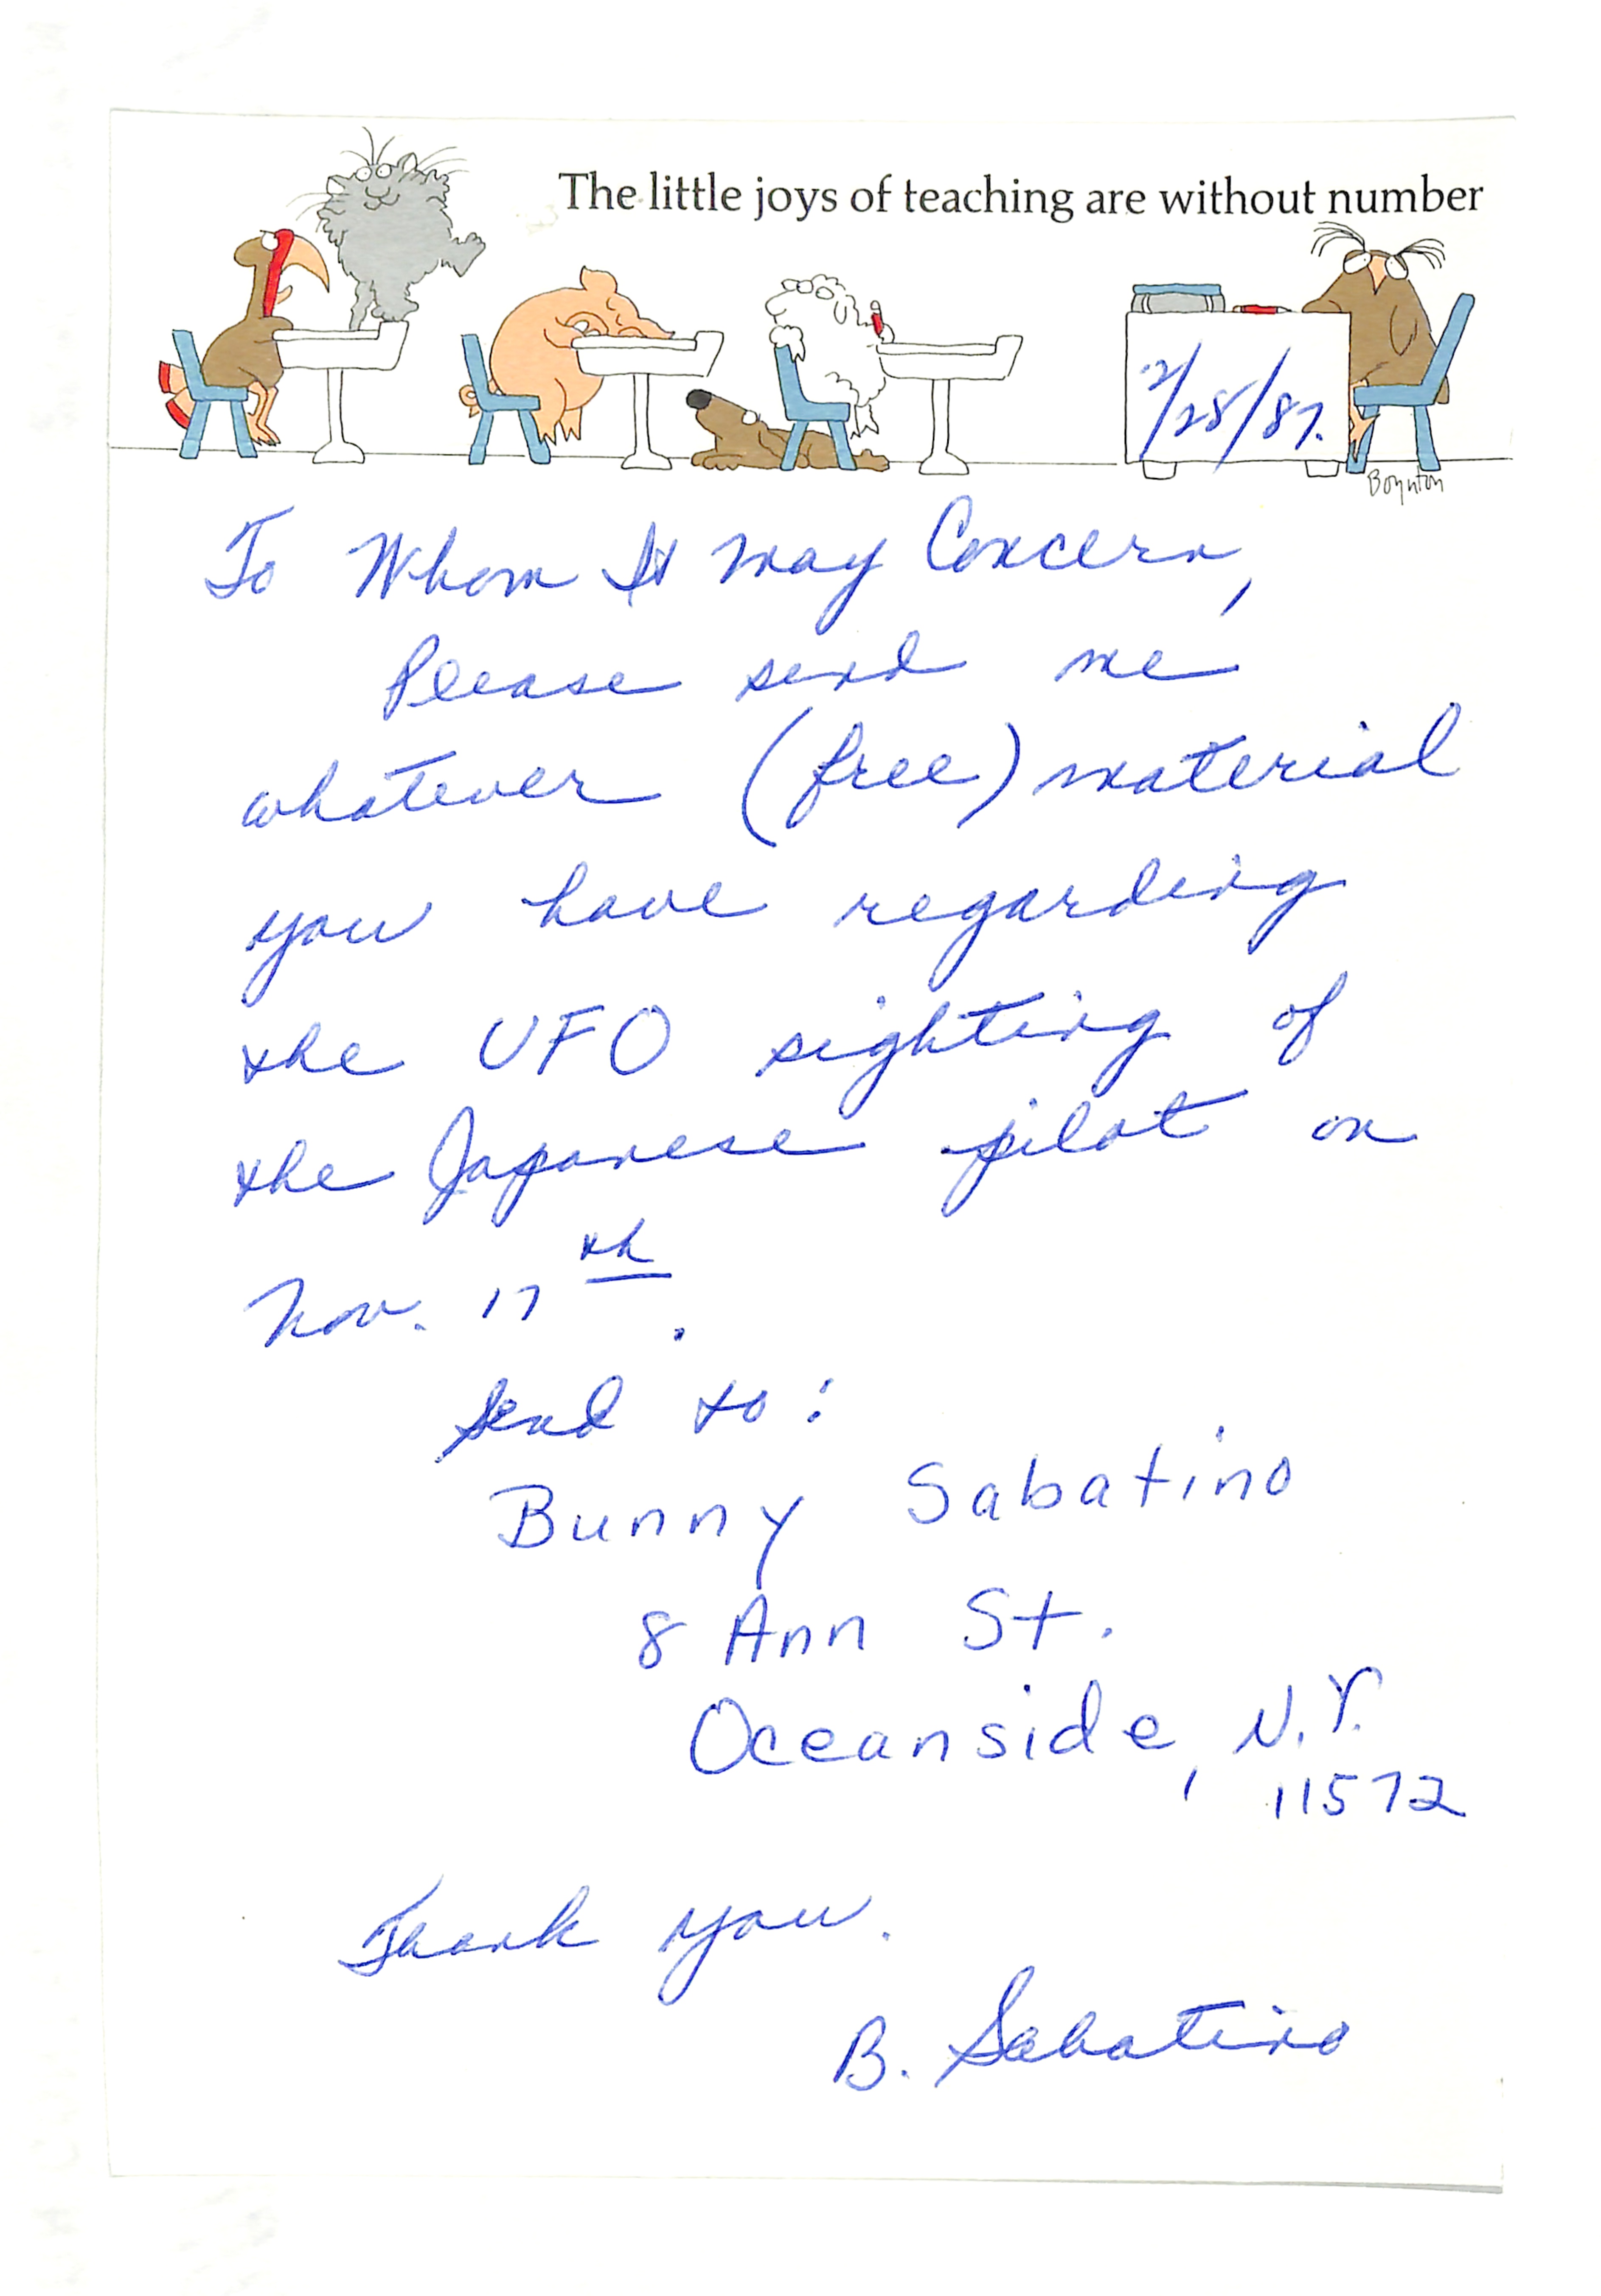 The little joys of teaching are without number
2/25/87.
Boynton
To Whom It May Concern,
Please send me
whatever (free) material
you have regarding
the UFO sighting of
the Japanese pilot on
Nov. 17th.
Send to:
Bunny Sabatino
8 Ann St.
Oceanside, N.Y.
11572
Thank you.
B. Sabatino